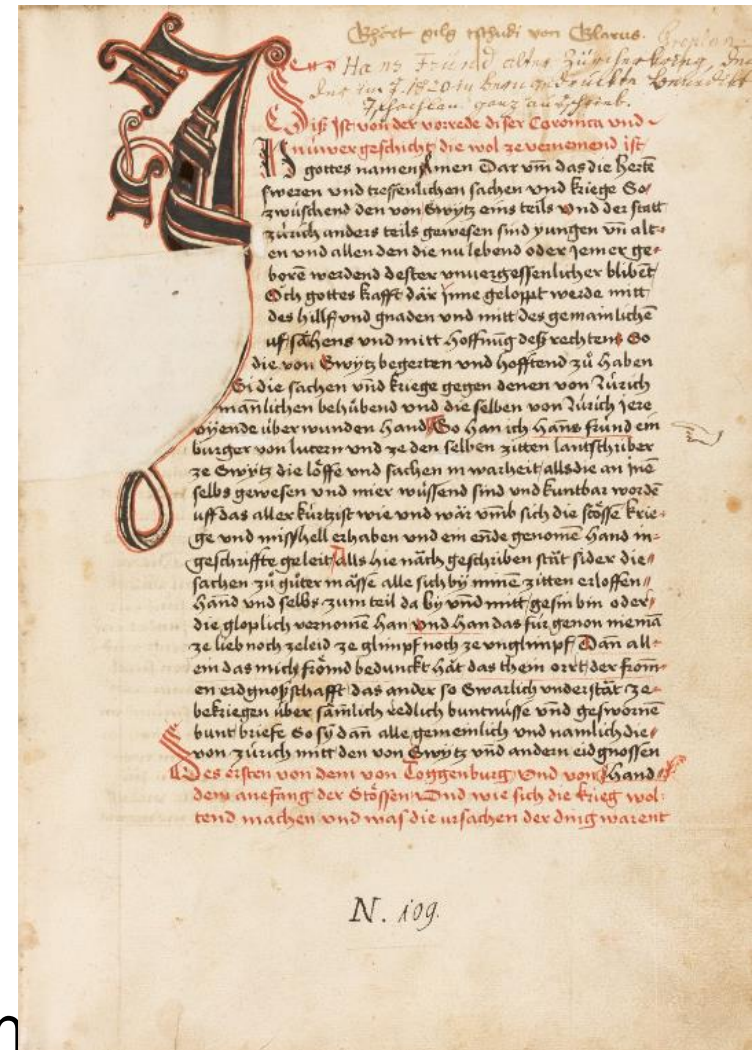 Ghört gilg tschudi von Glarus.
Hans Fründ alter Zürcherkrieg, den
der im J. 1820 in Bern gedruckte Benedikt
Tschachtlan ganz ausschrieb.
Diß Ist von der vorrede diser Coronica vnd
núwer geschicht die wol ze vernemend ist
gottes namen Amen Dar vm das die herte
sweren vnd treffenlichen sachen vnd kriege So
zwúschend den von Swytz eins teils vnd der statt
zúrich anders teils gewesen sind yungen vn̄ alt-
en vnd allen den die nu lebend oder yemer ge-
borē werdend dester vnuergessenlicher blibēt
Och gottes krafft där jnne geloppt werde mitt
des hillff vnd gnaden vnd mitt des gemainlichē
uf sächens vnd mitt hoffnūg deß rechtens So
die von Swytz begerten vnd hofftend zů haben
Si die sachen vnd kriege gegen denen von Zúrich
manlichen behübend vnd die selben von Zúrich jere
vyende úber wunden hand So han ich hans fründ ein
burger von lucern vnd ze den selben zitten lantschriber
ze Swytz die löffe vnd sachen in warheit alls die an jnē
selbs gewesen vnd mier wússend sind vnd kuntbar wordē
uff das aller kúrtzist wie vnd wär vmb sich die stösse krie-
ge vnd misshell erhaben vnd ein ende genomē hand in-
geschriffte geleit alls hie näch geschriben stät sider die
sachen zů gůter mässe alle sich by minē zitten erloffen
händ vnd selbs zum teil da by vnd mitt gesin bin oder
die gloplich vernomē han vnd han das fúr genon niemā
ze lieb noch ze leid ze glimpf noch ze vnglimpf Dan̄ all-
ein das mich frömd bedunckt hät das them orrt der from-
en eidgnoschafft das ander so swarlich vnderstät ze-
bekriegen úber sämlich redlich buntnússe vnd geswornē
bunt briefe So sy dan̄ alle gemeinlich vnd namlich die
von zúrich mitt den von Swytz vnd andern eidgnossen
Des ersten von dem von Toggenburg vnd von hand
dem anefang der Stössen Vnd wie sich die krieg wol-
tend machen vnd was die ursachen der ding warent
N. 109.